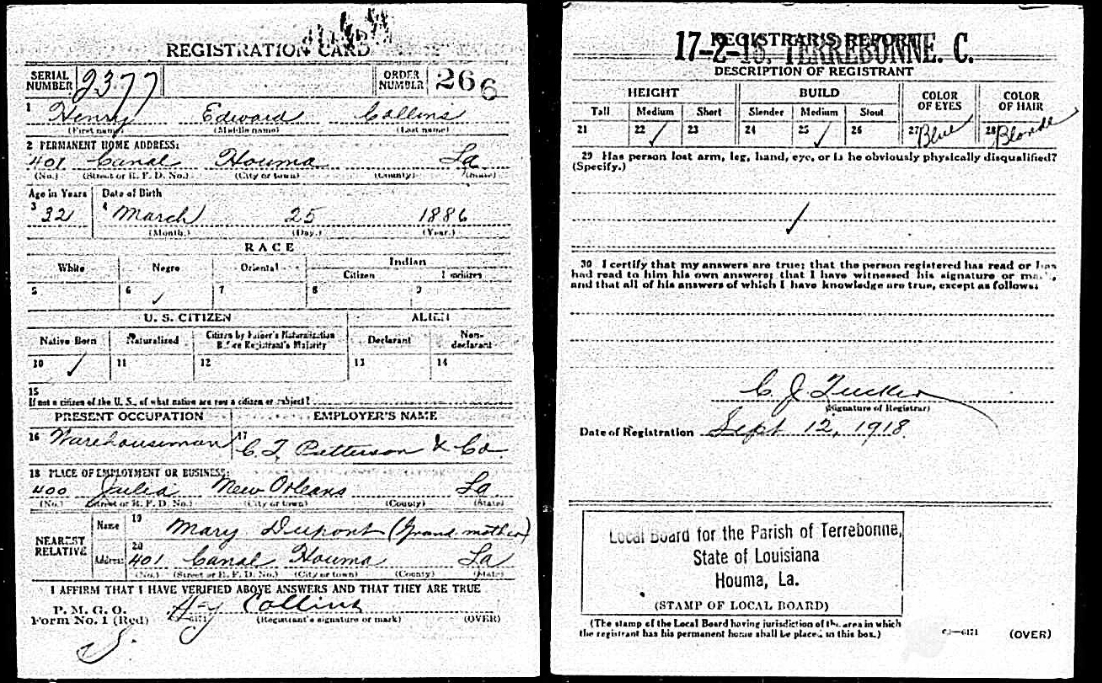 REGISTRATION CARD
SERIAL NUMBER 2377
ORDER NUMBER 266
1 Henry Edward Collins
(First name) (Middle name) (Last name)
2 PERMANENT HOME ADDRESS:
401 Canal Houma La
(No.) (Street or R. F. D. No.) (City or town) (County) (State)
Age in Years Date of Birth
3 32 4 March 25 1886
(Month.) (Day.) (Year.)
RACE
White Negro Oriental Indian
Citizen
5 6 ✓ 7 8 9
U. S. CITIZEN ALIEN
Native Born Naturalized Citizen by Father's Naturalization Before Registrant's Majority Declarant Non-declarant
10 ✓ 11 12 13 14
15
If not a citizen of the U. S., of what nation are you a citizen or subject?
PRESENT OCCUPATION EMPLOYER'S NAME
16 Warehouseman 17 C. T. Patterson & Co.
18 PLACE OF EMPLOYMENT OR BUSINESS:
400 Julia New Orleans La
(No.) (Street or R. F. D. No.) (City or town) (County) (State)
NEAREST RELATIVE
Name 19 Mary Dupont (Grand mother)
Address 20 401 Canal Houma La
(No.) (Street or R. F. D. No.) (City or town) (County) (State)
I AFFIRM THAT I HAVE VERIFIED ABOVE ANSWERS AND THAT THEY ARE TRUE
P. M. G. O.
Form No. 1 (Red) Hy Collins
(Registrant's signature or mark) (OVER)
REGISTRAR'S REPORT
17-2-18. TERREBONNE. C.
DESCRIPTION OF REGISTRANT
HEIGHT BUILD COLOR OF EYES COLOR OF HAIR
Tall Medium Short Slender Medium Stout
21 22 ✓ 23 24 25 ✓ 26 27 Blue 28 Blonde
29 Has person lost arm, leg, hand, eye, or is he obviously physically disqualified?
(Specify.)
✓
30 I certify that my answers are true; that the person registered has read or has
had read to him his own answers; that I have witnessed his signature or mark,
and that all of his answers of which I have knowledge are true, except as follows:
C. J. Tucker
(Signature of Registrar)
Date of Registration Sept 12, 1918
Local Board for the Parish of Terrebonne,
State of Louisiana
Houma, La.
(STAMP OF LOCAL BOARD)
(The stamp of the Local Board having jurisdiction of the area in which
the registrant has his permanent home shall be placed in this box.)
(OVER)